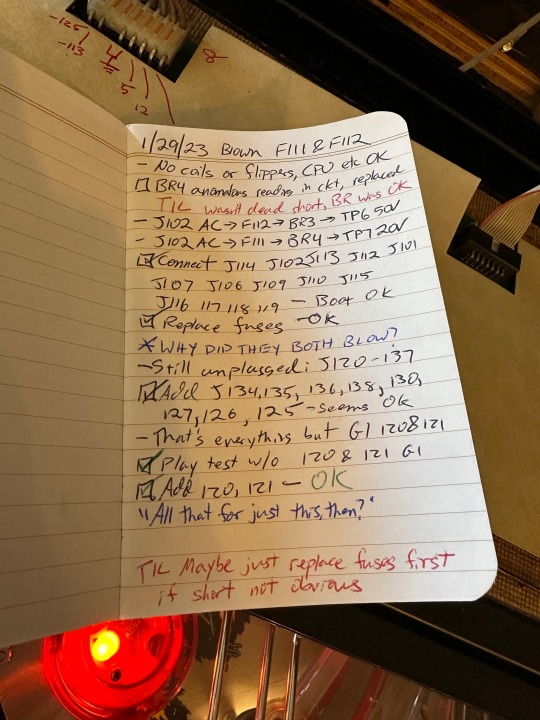 -125
-113
5
12
8
1/29/23 Blown F111 & F112
- No coils or flippers, CPU etc OK
☐ BR4 anomalous reading in ckt, replaced
TIL wasn't dead short, BR was OK
- J102 AC → F112 → BR3 → TP6 50V
- J102 AC → F111 → BR4 → TP7 20V
☑ Connect J114 J102 J113 J112 J101
J107 J106 J109 J110 J115
J116 117 118 119 - Boot OK
☑ Replace fuses - OK
* WHY DID THEY BOTH BLOW?
- Still unplugged: J120-137
☑ Add J134, 135, 136, 138, 130,
127, 126, 125 - seems OK
- That's everything but GI 120 & 121
☑ Play test w/o 120 & 121 GI
☑ Add 120, 121 - OK
"All that for just this, then?"
TIL Maybe just replace fuses first
if short not obvious